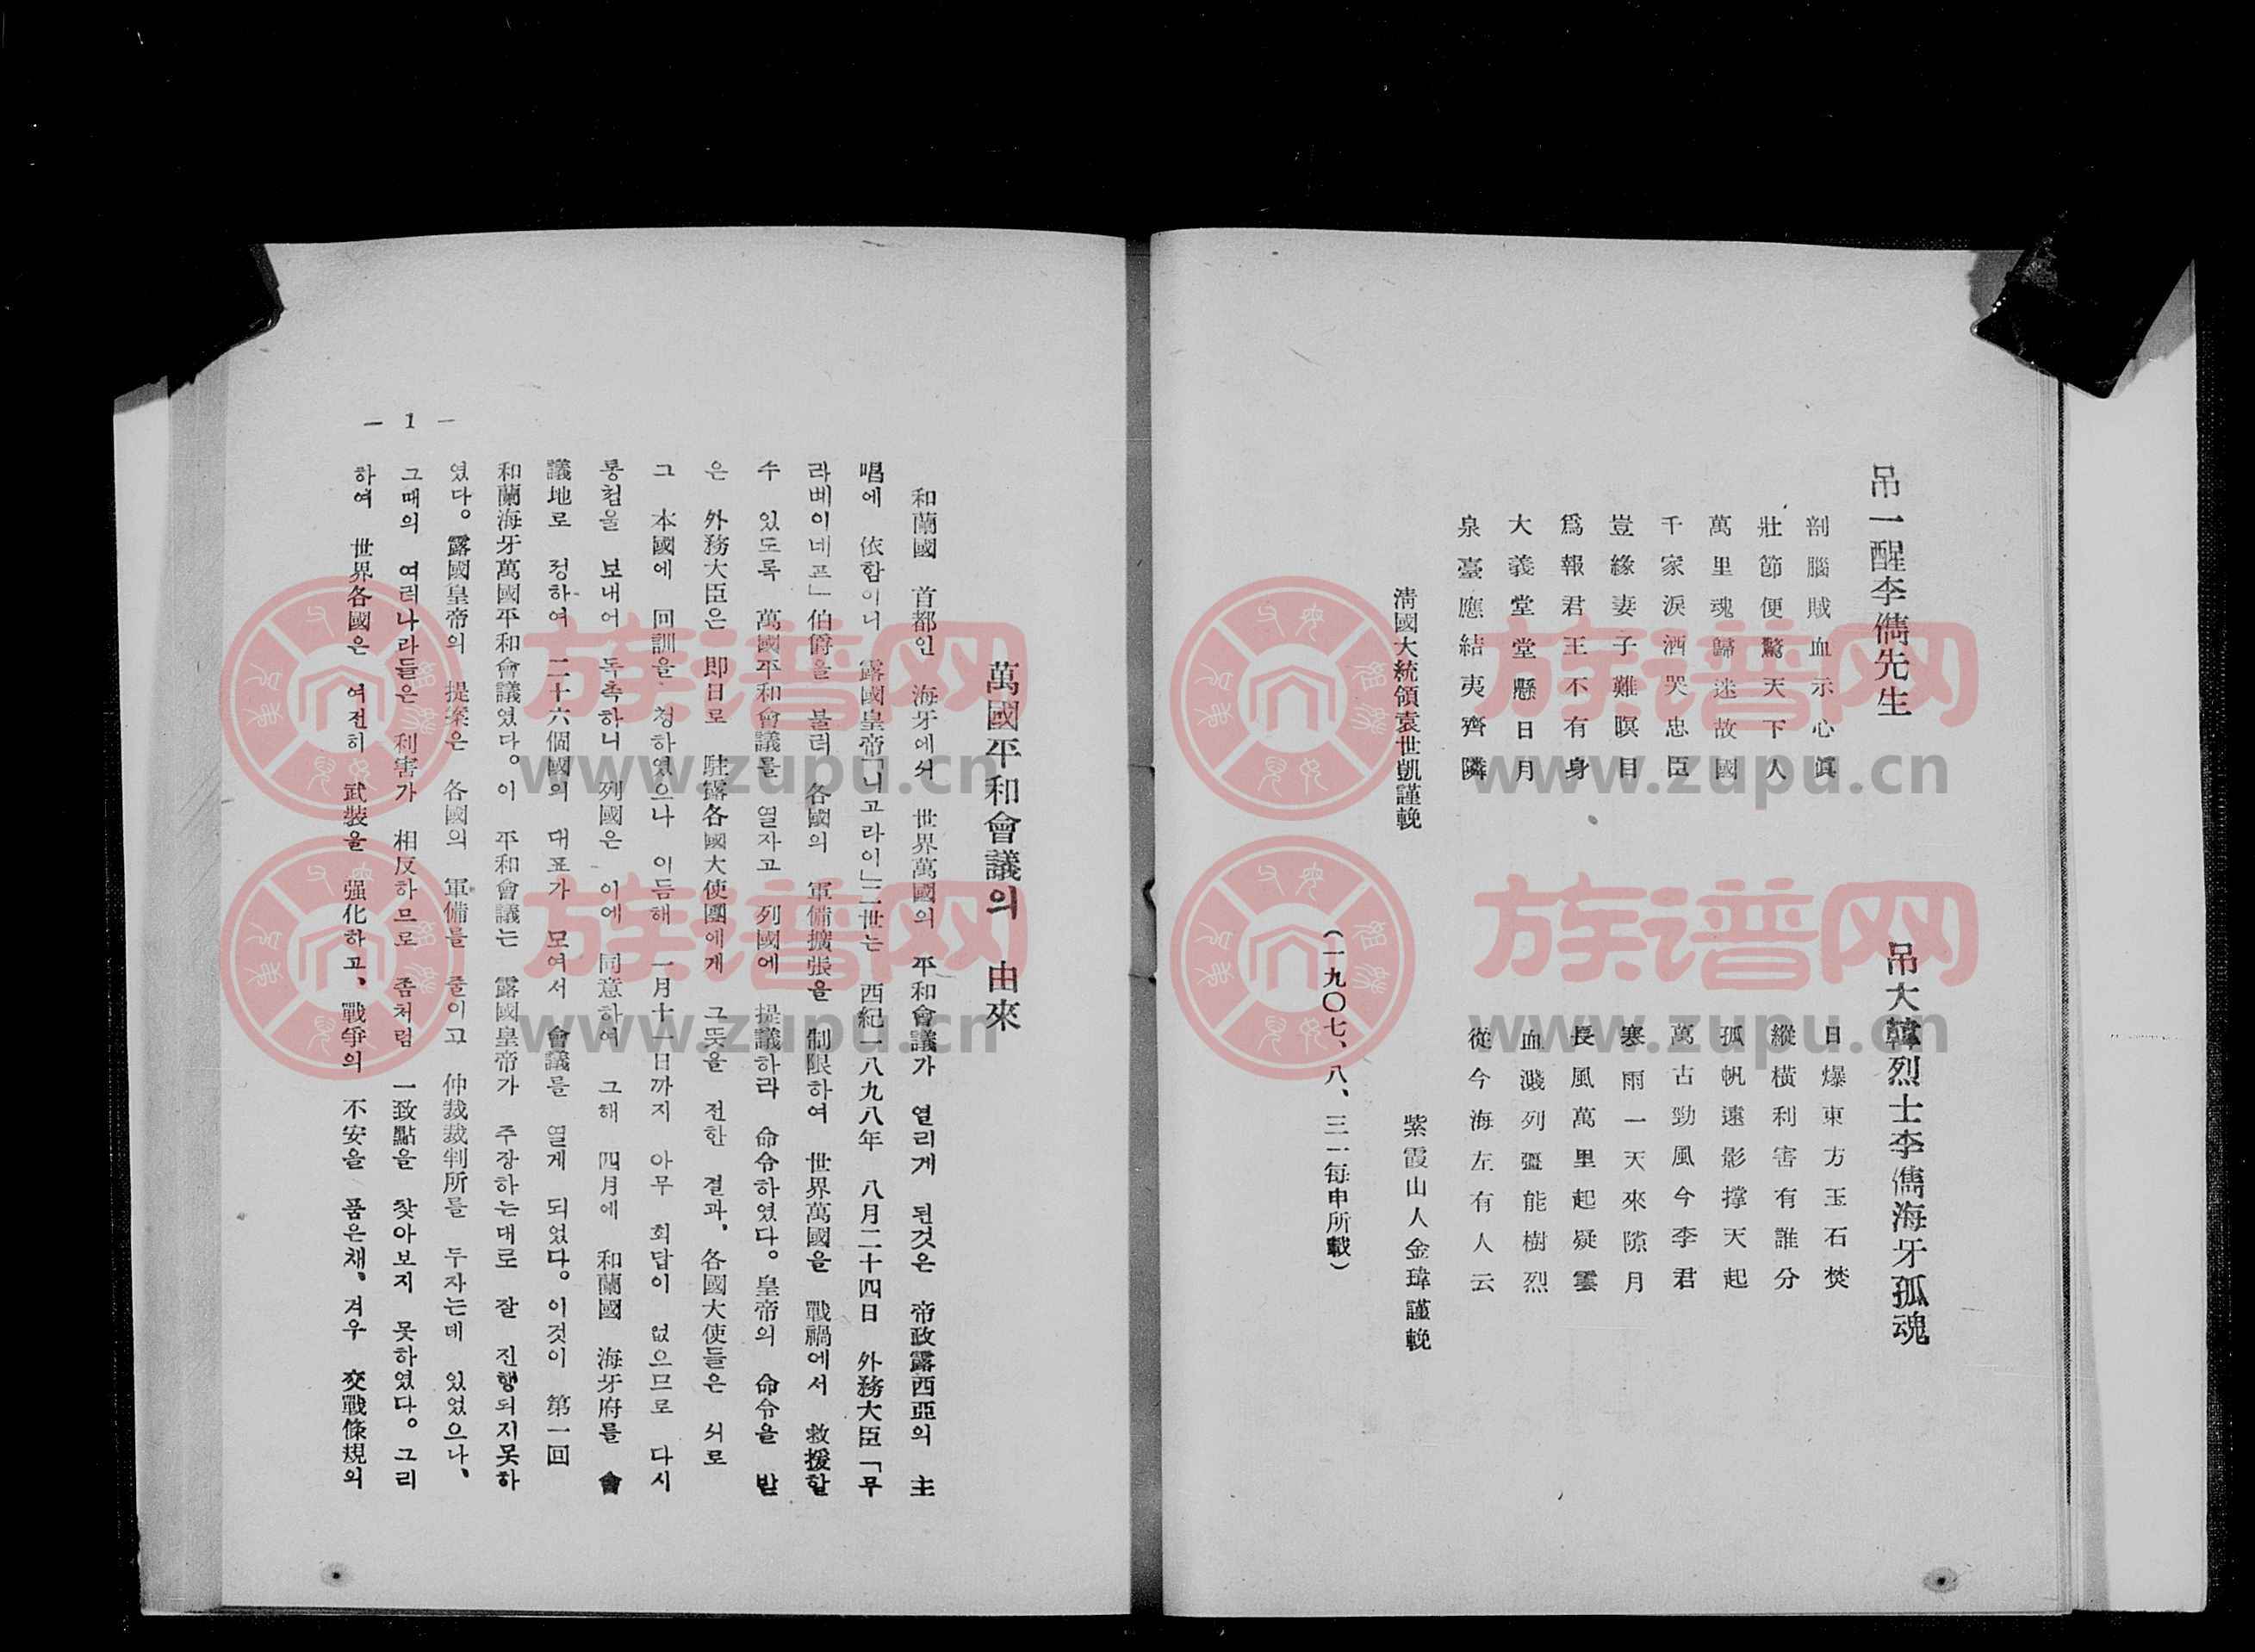 吊一醒李儁先生
剖腦賊血示心眞
壯節便驚天下人
萬里魂歸迷故國
千家淚洒哭忠臣
豈緣妻子難瞑目
爲報君王不有身
大義堂堂懸日月
泉臺應結夷齊隣
淸國大統領袁世凱謹輓
吊大韓烈士李儁海牙孤魂
日爆東方玉石焚
縱橫利害有誰分
孤帆遠影撑天起
萬古勁風今李君
寒雨一天來隙月
長風萬里起疑雲
血濺列疆能樹烈
從今海左有人云
紫霞山人金瑋謹輓
(一九〇七、八、三一每申所載)
萬國平和會議의 由來
和蘭國 首都인 海牙에서 世界萬國의 平和會議가 열리게 된것은 帝政露西亞의 主
唱에 依함이니 露國皇帝「니고라이」二世는 西紀一八九八年 八月二十四日 外務大臣「무
라베이네프」伯爵을 불러 各國의 軍備擴張을 制限하여 世界萬國을 戰禍에서 救援할
수 있도록 萬國平和會議를 열자고 列國에 提議하라 命令하였다。皇帝의 命令을 받
은 外務大臣은 即日로 駐露各國大使團에게 그뜻을 전한 결과、各國大使들은 서로
그 本國에 回訓을 청하였으나 이듬해 一月十一日까지 아무 회답이 없으므로 다시
통첩을 보내어 독촉하니 列國은 이에 同意하여 그해 四月에 和蘭國 海牙府를 會
議地로 정하여 二十六個國의 대표가 모여서 會議를 열게 되었다。이것이 第一回
和蘭海牙萬國平和會議였다。이 平和會議는 露國皇帝가 주장하는대로 잘 진행되지못하
였다。露國皇帝의 提案은 各國의 軍備를 줄이고 仲裁裁判所를 두자는데 있었으나、
그때의 여러나라들은 利害가 相反하므로 좀처럼 一致點을 찾아보지 못하였다。그리
하여 世界各國은 여전히 武裝을 强化하고、戰爭의 不安을 품은채、겨우 交戰條規의
— 1 —
族谱网
www.zupu.cn
族谱网
www.zupu.cn
族谱网
www.zupu.cn
族谱网
www.zupu.cn